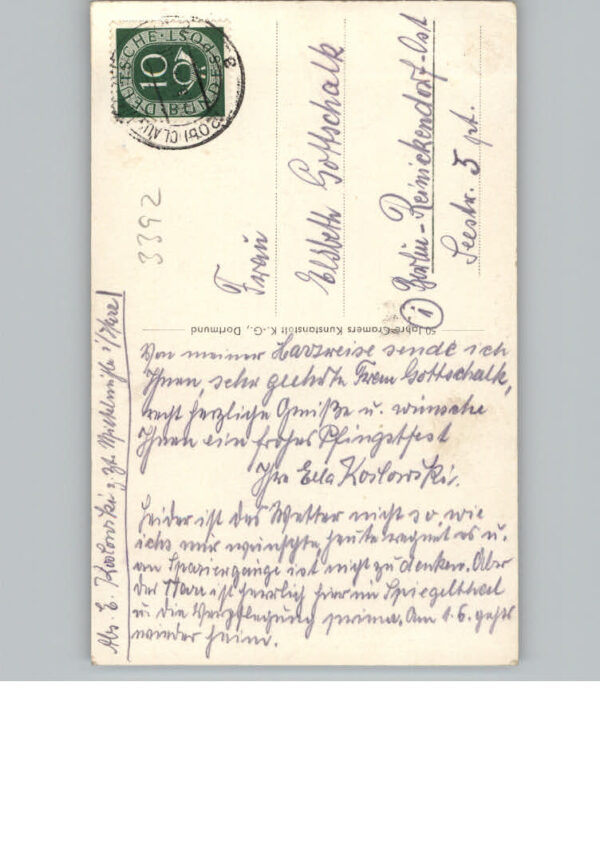 Von meiner Harzreise sende ich
Ihnen, sehr geehrte Frau Gottschalk,
recht herzliche Grüße u. wünsche
Ihnen ein frohes Pfingstfest
Ihre Ella Koslowski.
Leider ist das Wetter nicht so, wie
ichs mir wünschte, heute regnet es u.
an Spaziergänge ist nicht zu denken. Aber
der Harz ist herrlich hier im Spiegelthal
u. die Verpflegung prima. Am 1.6. gehts
wieder heim.
Abs. E. Koslowski z. Zt. i/Harz
50 Jahre Cramers Kunstanstalt K.-G., Dortmund
Frau
Elsbeth Gottschalk
(1) Berlin-Reinickendorf-Ost
Seestr. 5 pt.
3392
DEUTSCHE BUNDESPOST
10